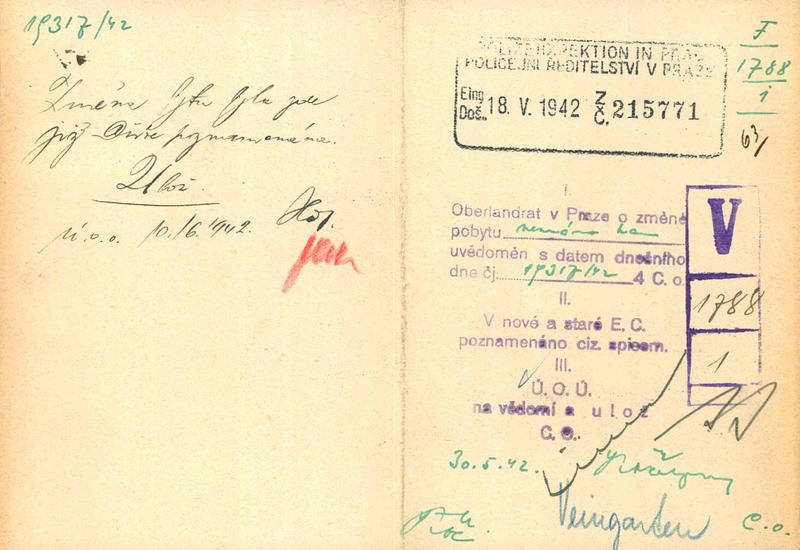 19317/42
Změna bytu byla zde
již dříve poznamenána.
Ulož
10./6. 1942.
F
1788
1
63/
POLIZEIDIREKTION IN PRAG
POLICEJNÍ ŘEDITELSTVÍ V PRAZE
Eing.
Doš. 18. V. 1942 Z. Č. 215771
I.
Oberlandrat v Praze o změně
pobytu
uvědoměn s datem dnešního
dne čj. 19317/42 4 C. o.
II.
V nové a staré E. C.
poznamenáno ciz. spisem.
III.
Ú. O. Ú.
na vědomí a ulož
C. O.
V
1788
1
30.5.42.
Weingarten
C. o.